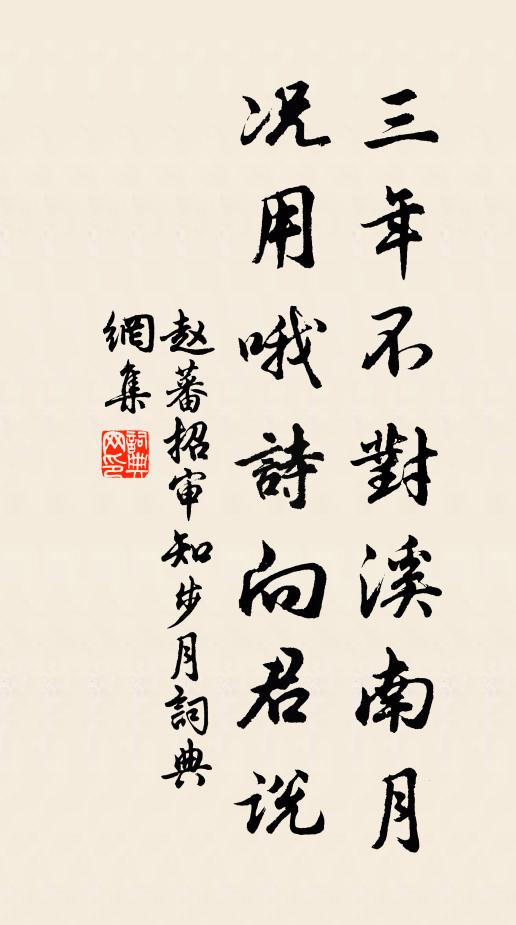 三年不對溪南月
况用哦詩向君説
赵蕃招审知步月詞典
網集
詞典
网印